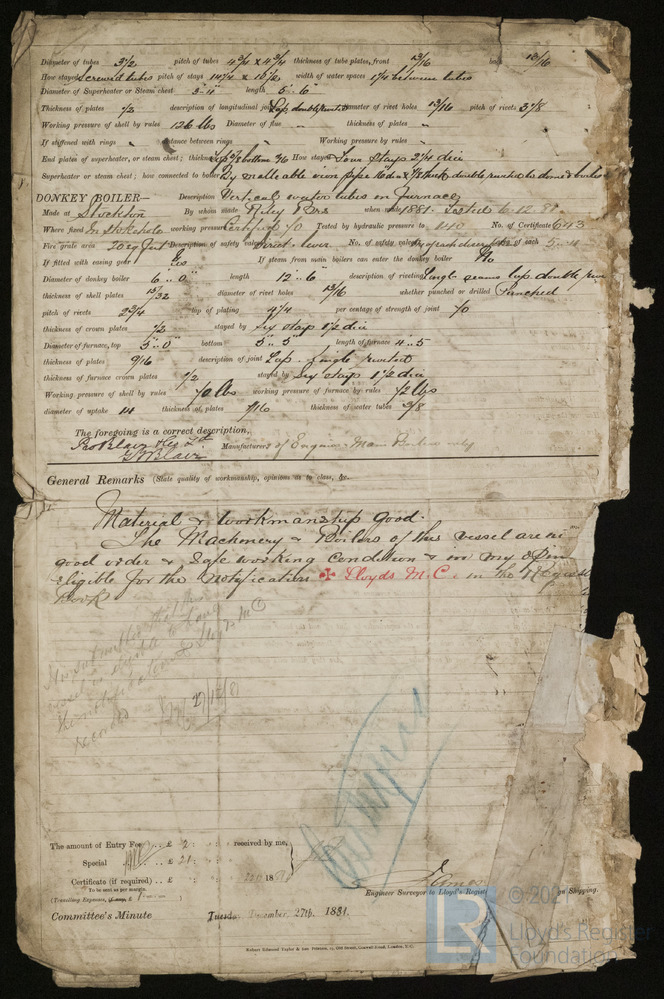 Diameter of tubes 3 1/2 pitch of tubes 4 3/4 x 4 3/4 thickness of tube plates, front 13/16 back 13/16
How stayed Screwed tubes pitch of stays 14 1/4 x width of water spaces 1 1/4 between tubes
Diameter of Superheater or Steam chest 3'-11" length 5'-6"
Thickness of plates 1/2 description of longitudinal joint Lap double riveted diameter of rivet holes 13/16 pitch of rivets 3 1/8
Working pressure of shell by rules 126 lbs Diameter of flue " thickness of plates "
If stiffened with rings " distance between rings " Working pressure by rules "
End plates of superheater, or steam chest; thickness How stayed Four Stays 2 1/4 dia
Superheater or steam chest; how connected to boiler By malleable iron pipe double riveted to dome & boiler
DONKEY BOILER— Description Vertical, water tubes in furnace
Made at Stockton By whom made Riley Bros when made 1881. Tested 6-12-81.
Where fixed In Stokehole working pressure 70 Tested by hydraulic pressure to 140 No. of Certificate 643
Fire grate area 20 sq feet Description of safety valves Direct lever No. of safety valves area of each
If fitted with easing gear Yes If steam from main boilers can enter the donkey boiler No
Diameter of donkey boiler 6'-0" length 12'-6" description of riveting Single seams lap double
thickness of shell plates 15/32 diameter of rivet holes 13/16 whether punched or drilled Punched
pitch of rivets 2 3/4 lap of plating 4 1/4 per centage of strength of joint 70
thickness of crown plates 1/2 stayed by Six stays 1 1/2 dia
Diameter of furnace, top 5'-0" bottom 5'-5" length of furnace 4'-5
thickness of plates 9/16 description of joint Lap Single riveted
thickness of furnace crown plates 1/2 stayed by Six stays 1 1/2 dia
Working pressure of shell by rules 70 lbs working pressure of furnace by rules 72 lbs
diameter of uptake 14 thickness of plates 7/16 thickness of water tubes 3/8
The foregoing is a correct description,
Pro Blair & Co Ld
G Blair Manufacturers of Engines & Main Boilers only
General Remarks (State quality of workmanship, opinions as to class, &c.
Material & workmanship good.
The Machinery & Boilers of this vessel are in
good order & safe working condition & in my opin
eligible for the notification ✠ Lloyds M.C. in the Register
Book
It is submitted that this
vessel is eligible to have
the notification Lloyd's MC
recorded
27/12/81
The amount of Entry Fee .. £ 2 : : received by me,
Special .. £ 21 : :
Certificate (if required) .. £ : : 18
To be sent as per margin.
(Travelling Expenses, if any, £ )
Engineer Surveyor to Lloyd's Register Shipping.
Committee's Minute Tuesday December 27th, 1881.
© 202
Lloyd's Register
Foundation
LR